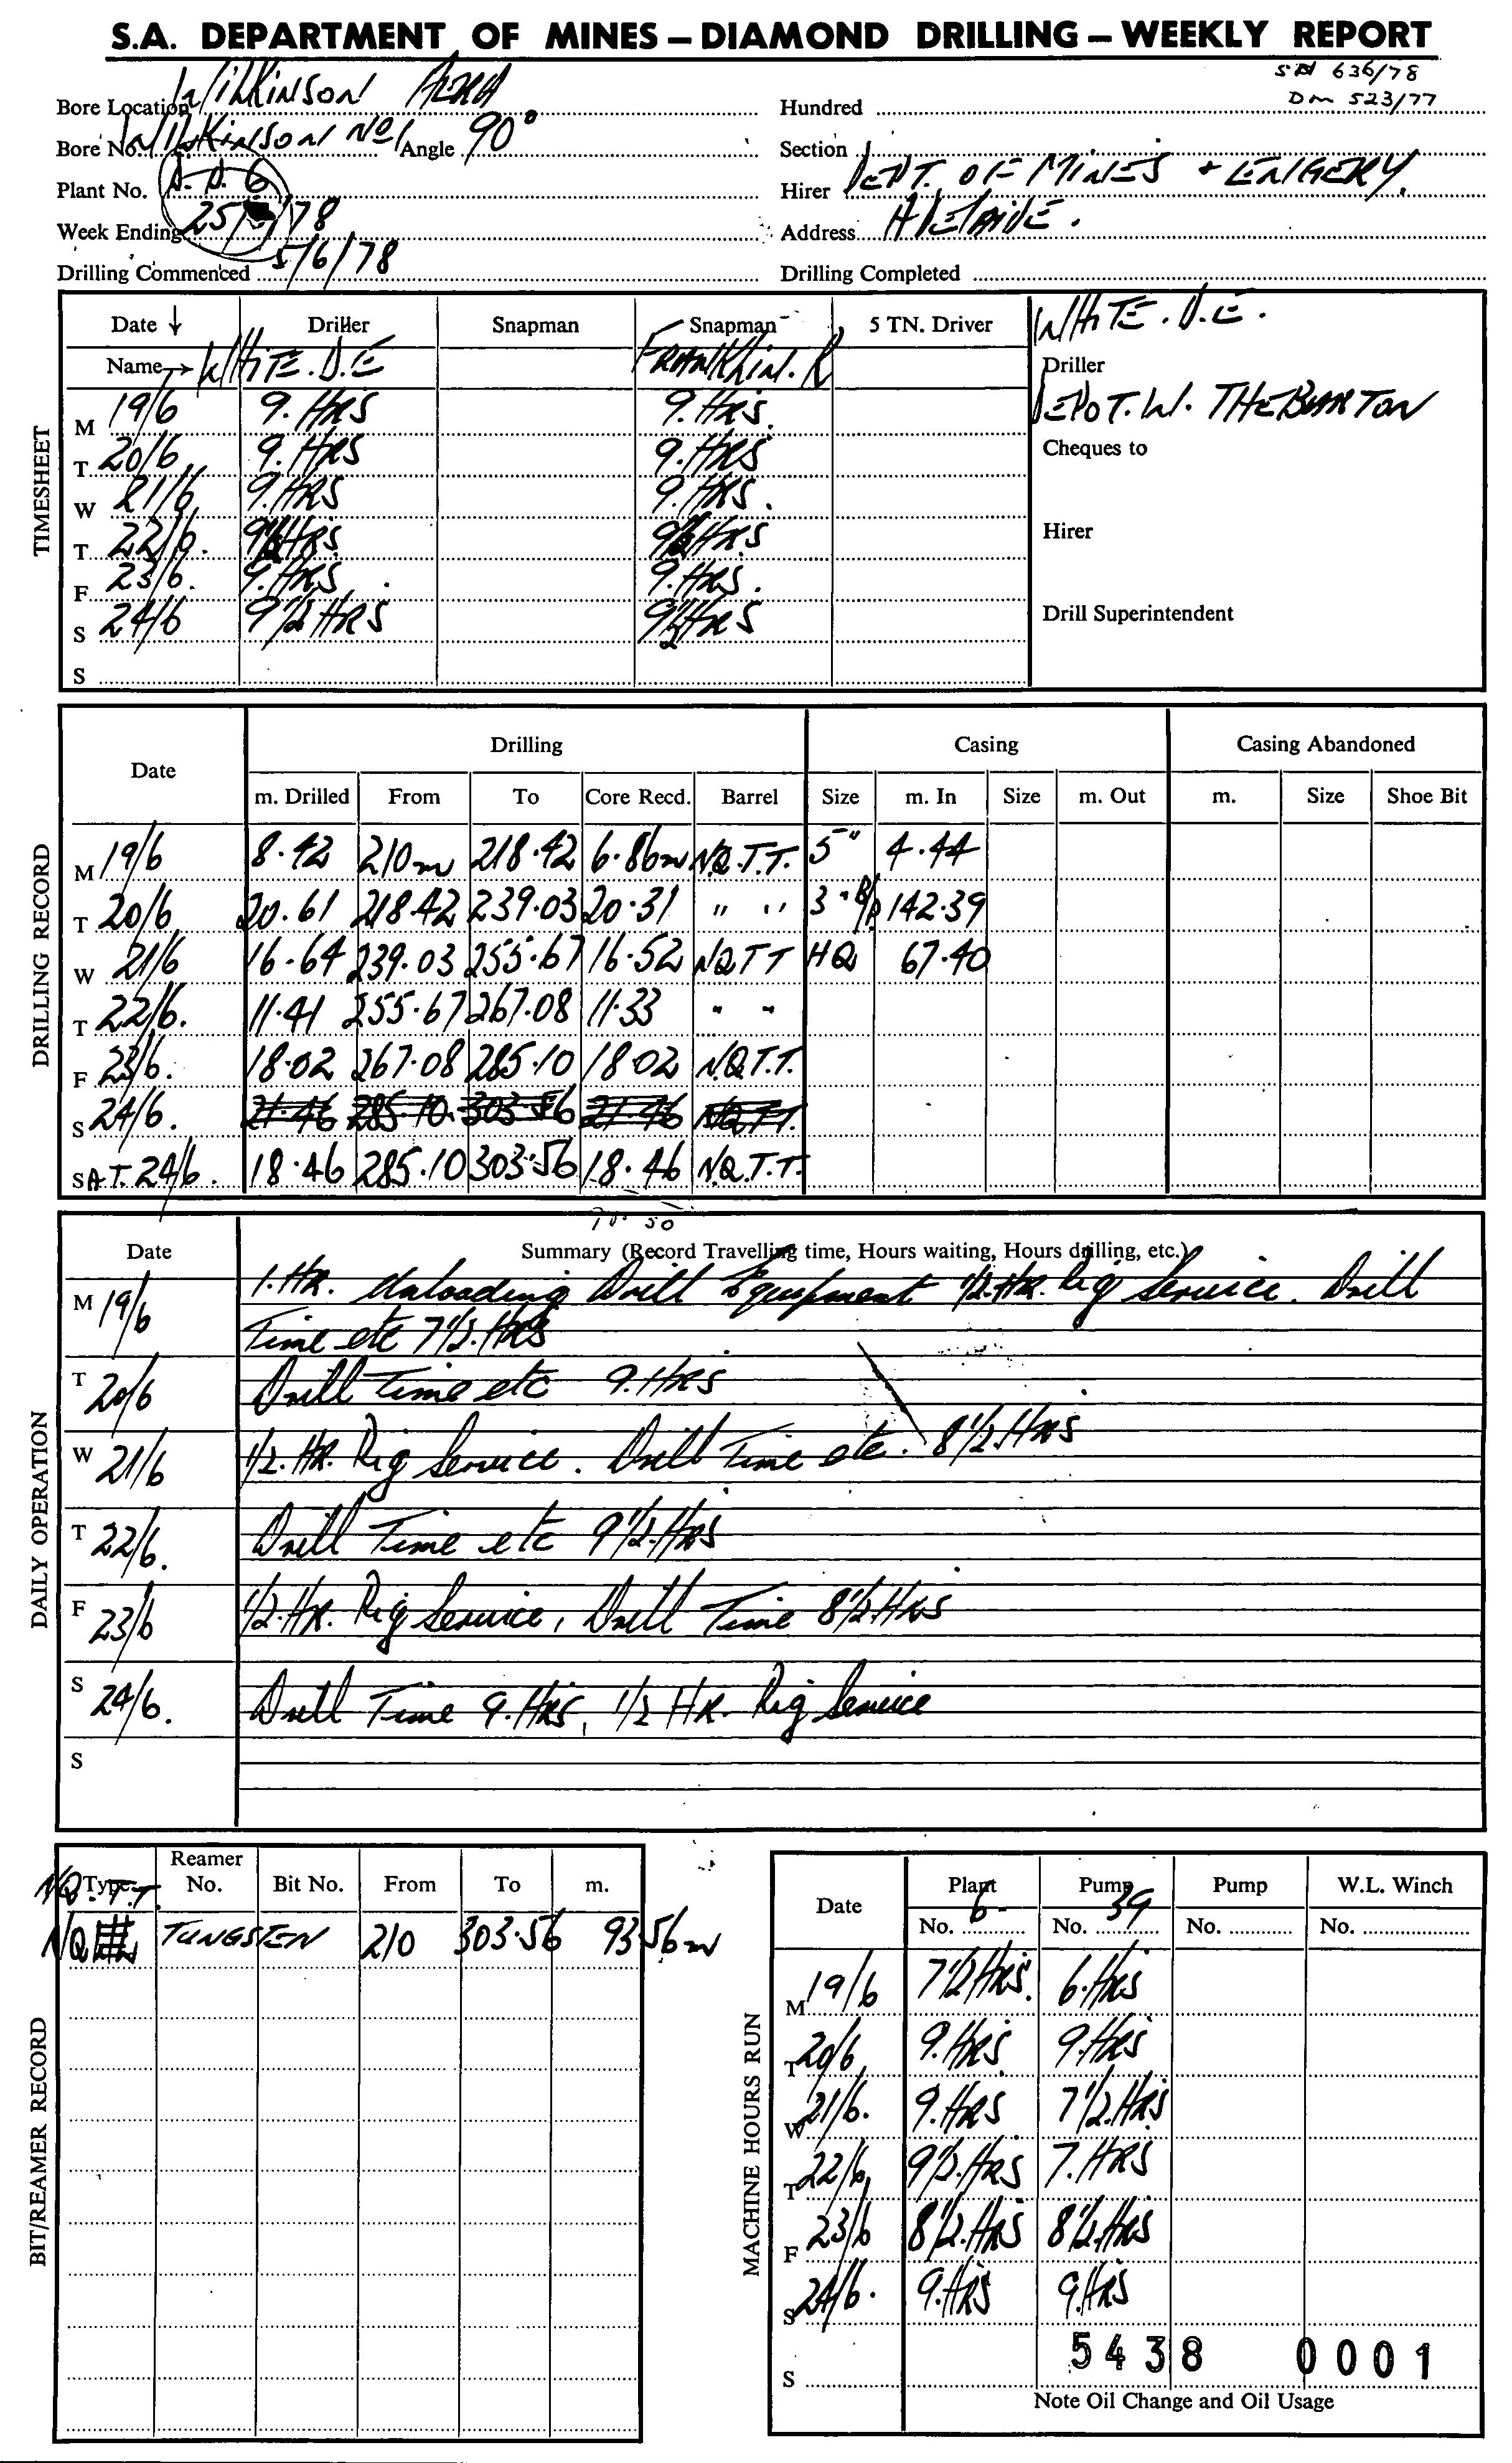 S.A. DEPARTMENT OF MINES – DIAMOND DRILLING – WEEKLY REPORT
SN 636/78
DM 523/77
Bore Location WILKINSON AREA Hundred
Bore No. WILKINSON No1 Angle 90° Section
Plant No. D.D.6 Hirer DEPT. OF MINES + ENGERY.
Week Ending 25/6/78 Address ADELAIDE.
Drilling Commenced 5/6/78 Drilling Completed
TIMESHEET
Date ↓ Driller Snapman Snapman 5 TN. Driver WHITE. D.E.
Name → WHITE. D.E FRANKLIN. R Driller
M 19/6 9. HRS 9. HRS. DEPOT. W. THEBARTON
T 20/6 9. HRS 9. HRS Cheques to
W 21/6 9. HRS 9. HRS.
T 22/6. 9 1/2 HRS. 9 1/2 HRS Hirer
F 23/6. 9. HRS. 9. HRS.
S 24/6 9 1/2 HRS 9 1/2 HRS Drill Superintendent
S
DRILLING RECORD
Date Drilling Casing Casing Abandoned
m. Drilled From To Core Recd. Barrel Size m. In Size m. Out m. Size Shoe Bit
M 19/6 8.42 210m 218.42 6.86m N.Q.T.T. 5" 4.44
T 20/6 20.61 218.42 239.03 20.31 " " 3" 142.39
W 21/6 16.64 239.03 255.67 16.52 NQTT HQ 67.40
T 22/6. 11.41 255.67 267.08 11.33 " "
F 23/6. 18.02 267.08 285.10 18.02 N.Q.T.T.
S 24/6. 21.46 285.10. 303.56 21.46 NQTT.
SAT. 24/6. 18.46 285.10 303.56 18.46 N.Q.T.T.
DAILY OPERATION
Date Summary (Record Travelling time, Hours waiting, Hours drilling, etc.)
M 19/6 1. HR. Unloading Drill Equipment 1/2. HR. Rig Service. Drill
Time etc 7 1/2. HRS
T 20/6 Drill Time etc 9. HRS
W 21/6 1/2. HR. Rig Service. Drill Time etc. 8 1/2. HRS
T 22/6. Drill Time etc 9 1/2. HRS
F 23/6 1/2. HR. Rig Service, Drill Time 8 1/2 HRS
S 24/6. Drill Time 9. HRS, 1/2 HR. Rig Service
S
BIT/REAMER RECORD
Type Reamer No. Bit No. From To m.
NQ.T.T.
NQ TUNGSTEN 210 303.56 93.56m
MACHINE HOURS RUN
Date Plant Pump Pump W.L. Winch
No. 6 No. 39 No. No.
M 19/6 7 1/2 HRS. 6. HRS
T 20/6 9. HRS 9. HRS
W 21/6. 9. HRS 7 1/2. HRS
T 22/6, 9 1/2. HRS 7. HRS
F 23/6 8 1/2. HRS 8 1/2. HRS
S 24/6. 9. HRS 9. HRS
5438 0001
S
Note Oil Change and Oil Usage